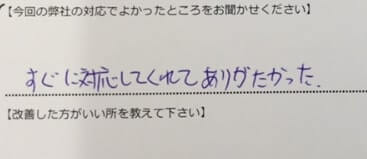 【今回の弊社の対応でよかったところをお聞かせください】
すぐに対応してくれてありがたかった.
【改善した方がいい所を教えて下さい】